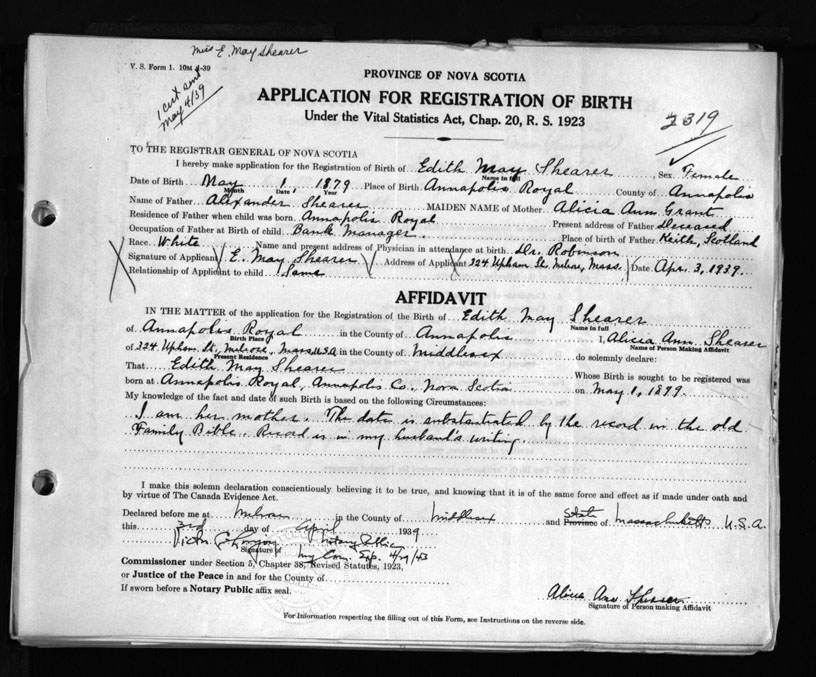 Miss E. May Shearer
V. S. Form 1. 10M 4-39
1 cert sent
May 4/39
PROVINCE OF NOVA SCOTIA
APPLICATION FOR REGISTRATION OF BIRTH
Under the Vital Statistics Act, Chap. 20, R. S. 1923
2319
TO THE REGISTRAR GENERAL OF NOVA SCOTIA
I hereby make application for the Registration of Birth of Edith May Shearer, Sex Female
Name in full
Date of Birth May 1 1879 Place of Birth Annapolis Royal County of Annapolis
Month Date Year
Name of Father Alexander Shearer MAIDEN NAME of Mother Alicia Ann Grant
Residence of Father when child was born Annapolis Royal Present address of Father Deceased
Occupation of Father at Birth of child Bank Manager. Place of birth of Father Keith, Scotland
Race White Name and present address of Physician in attendance at birth Dr. Robinson
Signature of Applicant E. May Shearer Address of Applicant 224 Upham St. Melrose, Mass. Date Apr. 3, 1939.
Relationship of Applicant to child Same
AFFIDAVIT
IN THE MATTER of the application for the Registration of the Birth of Edith May Shearer
Name in full
of Annapolis Royal in the County of Annapolis I, Alicia Ann Shearer
Birth Place Name of Person Making Affidavit
of 224 Upham St, Melrose, Mass U.S.A in the County of Middlesex do solemnly declare:
Present Residence
That Edith May Shearer Whose Birth is sought to be registered was
born at Annapolis Royal, Annapolis Co., Nova Scotia on May 1, 1879.
My knowledge of the fact and date of such Birth is based on the following Circumstances:
I am her mother. The date is substantiated by the record in the old
Family Bible. Record is in my husband's writing.
I make this solemn declaration conscientiously believing it to be true, and knowing that it is of the same force and effect as if made under oath and
by virtue of The Canada Evidence Act.
Declared before me at Melrose in the County of Middlesex and State Province of Massachusetts U.S.A.
this 3rd day of April 1939
Victor Notary Public
Signature of My Com. Exp. 4/29/43
Commissioner under Section 5, Chapter 38, Revised Statutes, 1923,
or Justice of the Peace in and for the County of
If sworn before a Notary Public affix seal.
Alicia Ann Shearer
Signature of Person making Affidavit
For Information respecting the filling out of this Form, see Instructions on the reverse side.